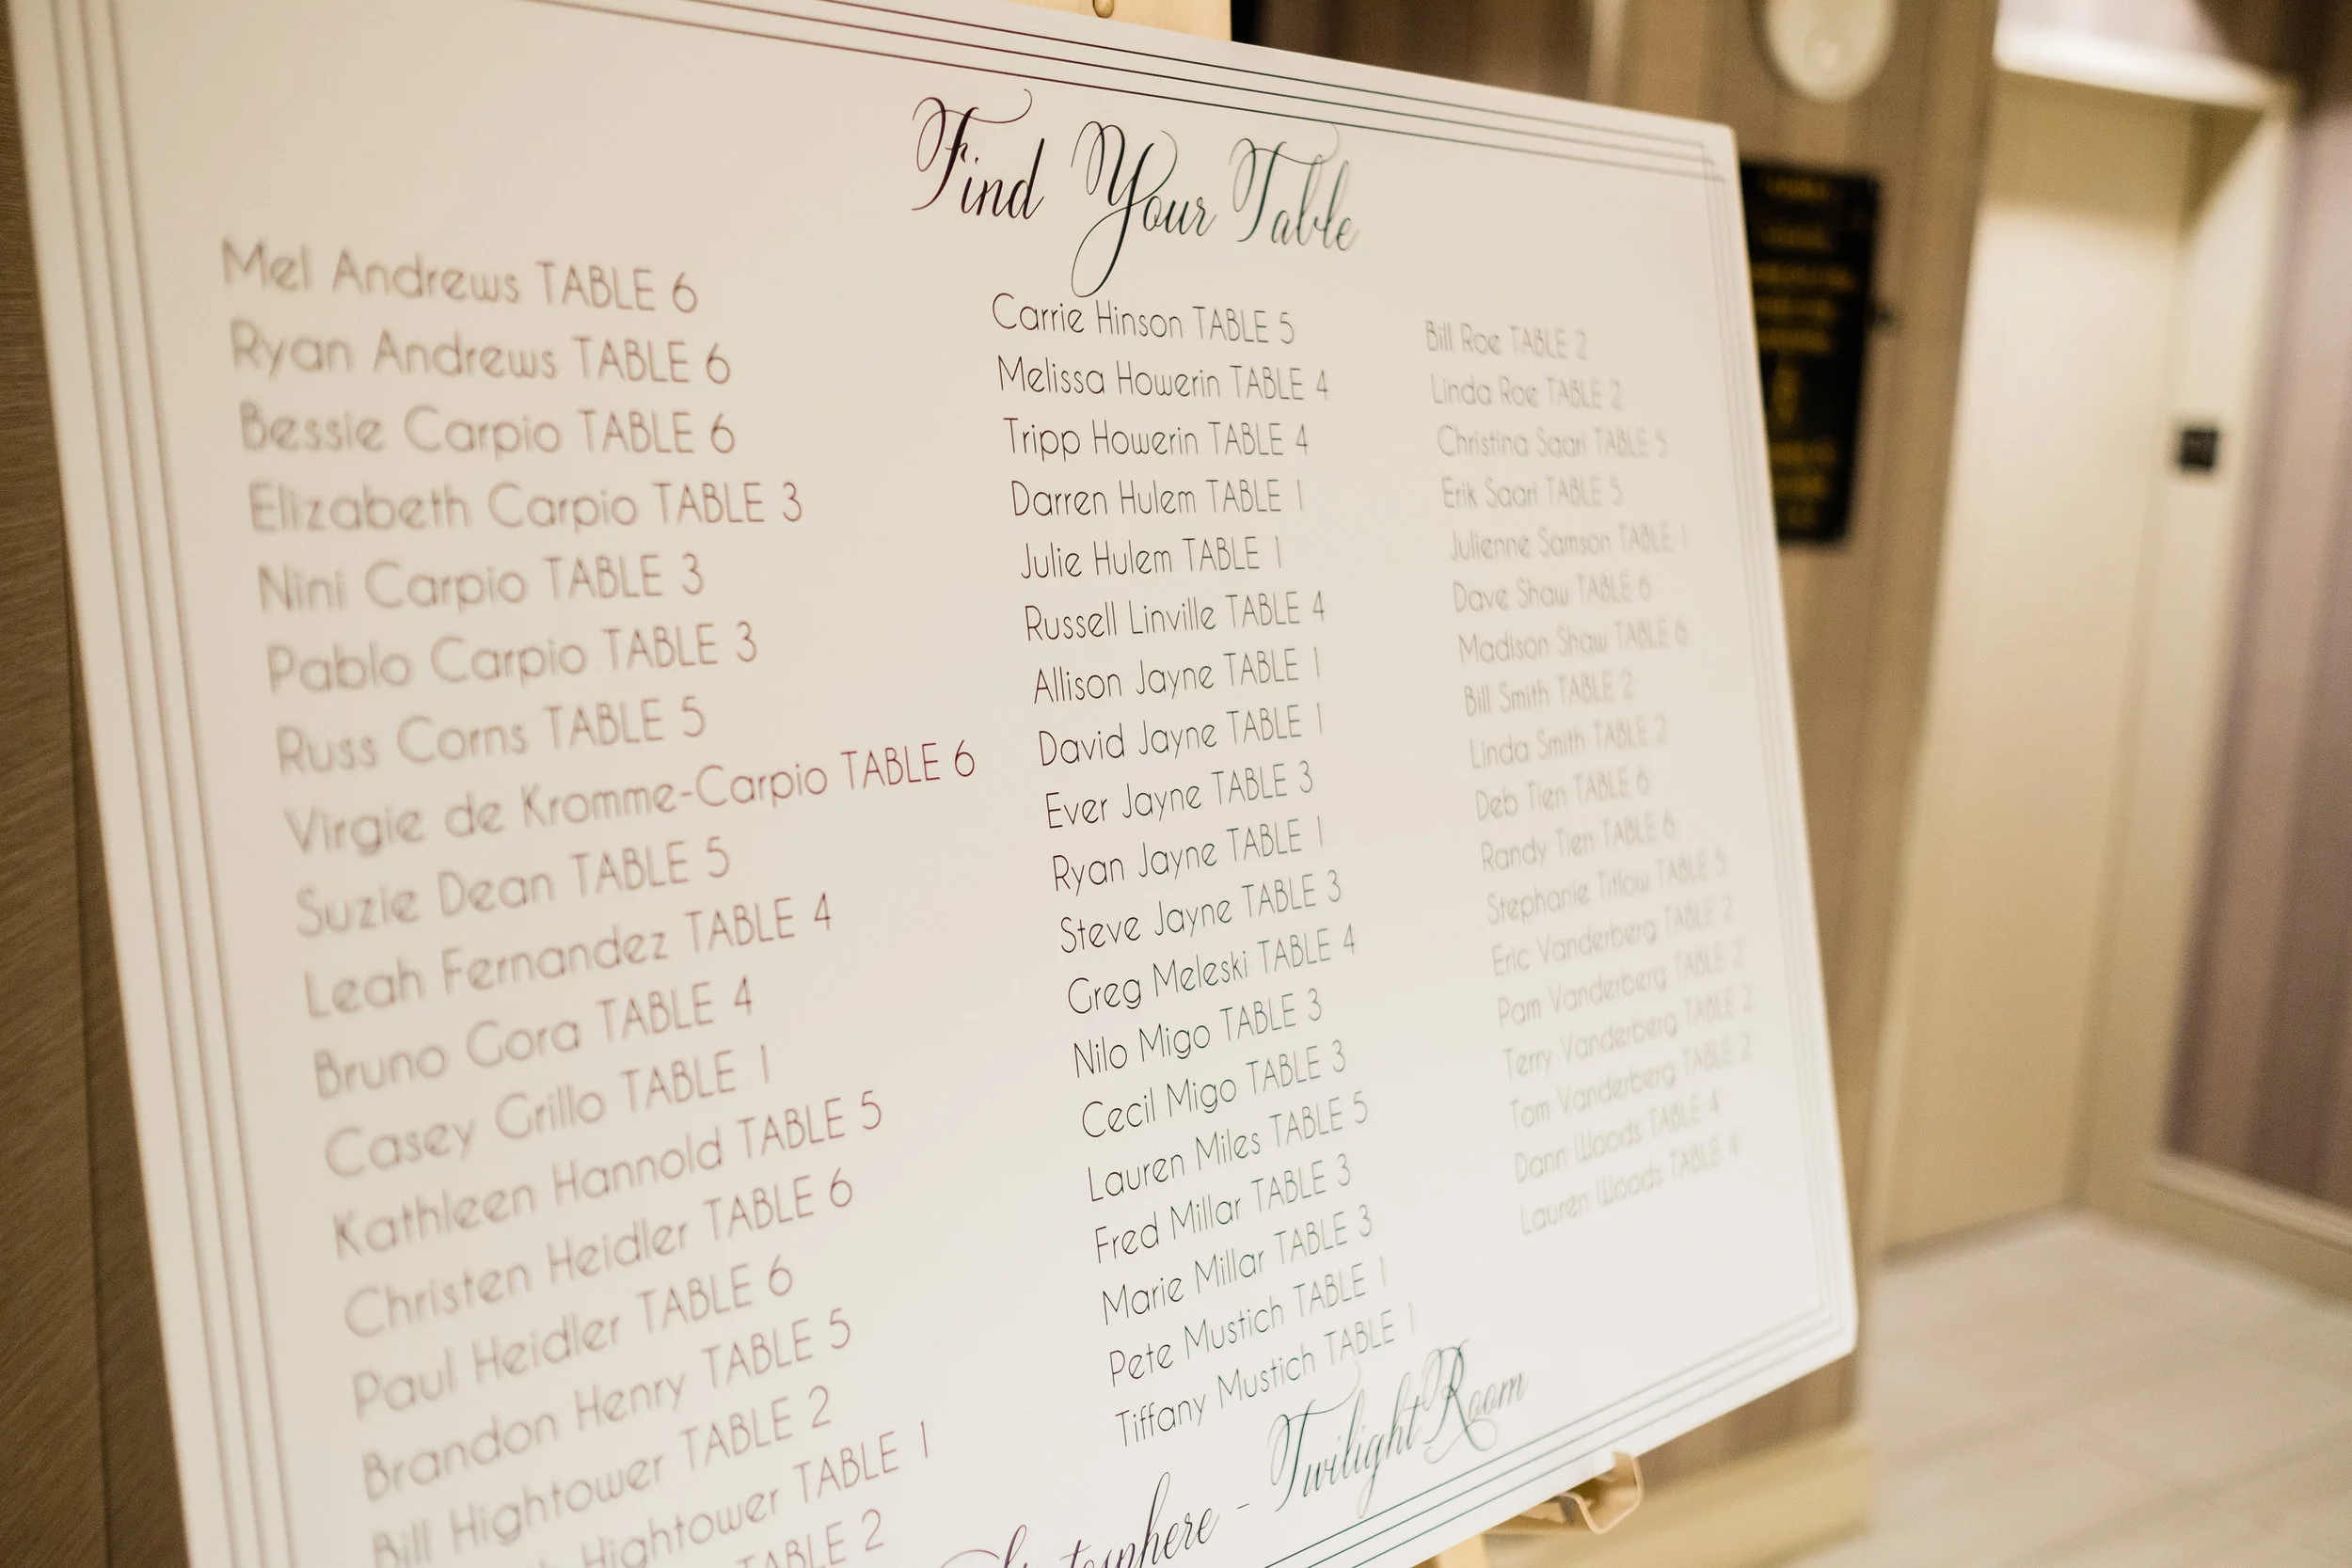 Find Your Table
Mel Andrews TABLE 6
Ryan Andrews TABLE 6
Bessie Carpio TABLE 6
Elizabeth Carpio TABLE 3
Nini Carpio TABLE 3
Pablo Carpio TABLE 3
Russ Corns TABLE 5
Virgie de Kromme-Carpio TABLE 6
Suzie Dean TABLE 5
Leah Fernandez TABLE 4
Bruno Gora TABLE 4
Casey Grillo TABLE 1
Kathleen Hannold TABLE 5
Christen Heidler TABLE 6
Paul Heidler TABLE 6
Brandon Henry TABLE 5
Bill Hightower TABLE 2
Hightower TABLE 1
TABLE 2
Carrie Hinson TABLE 5
Melissa Howerin TABLE 4
Tripp Howerin TABLE 4
Darren Hulem TABLE 1
Julie Hulem TABLE 1
Russell Linville TABLE 4
Allison Jayne TABLE 1
David Jayne TABLE 1
Ever Jayne TABLE 3
Ryan Jayne TABLE 1
Steve Jayne TABLE 3
Greg Meleski TABLE 4
Nilo Migo TABLE 3
Cecil Migo TABLE 3
Lauren Miles TABLE 5
Fred Millar TABLE 3
Marie Millar TABLE 3
Pete Mustich TABLE 1
Tiffany Mustich TABLE 1
Bill Roe TABLE 2
Linda Roe TABLE 2
Christina Saari TABLE 5
Erik Saari TABLE 5
Julienne Samson TABLE 1
Dave Shaw TABLE 6
Madison Shaw TABLE 6
Bill Smith TABLE 2
Linda Smith TABLE 2
Deb Tien TABLE 6
Randy Tien TABLE 6
Stephanie Titlow TABLE 5
Eric Vanderberg TABLE 2
Pam Vanderberg TABLE 2
Terry Vanderberg TABLE 2
Tom Vanderberg TABLE 2
Dann Woods TABLE 4
Lauren Woods TABLE 4
- Twilight Room